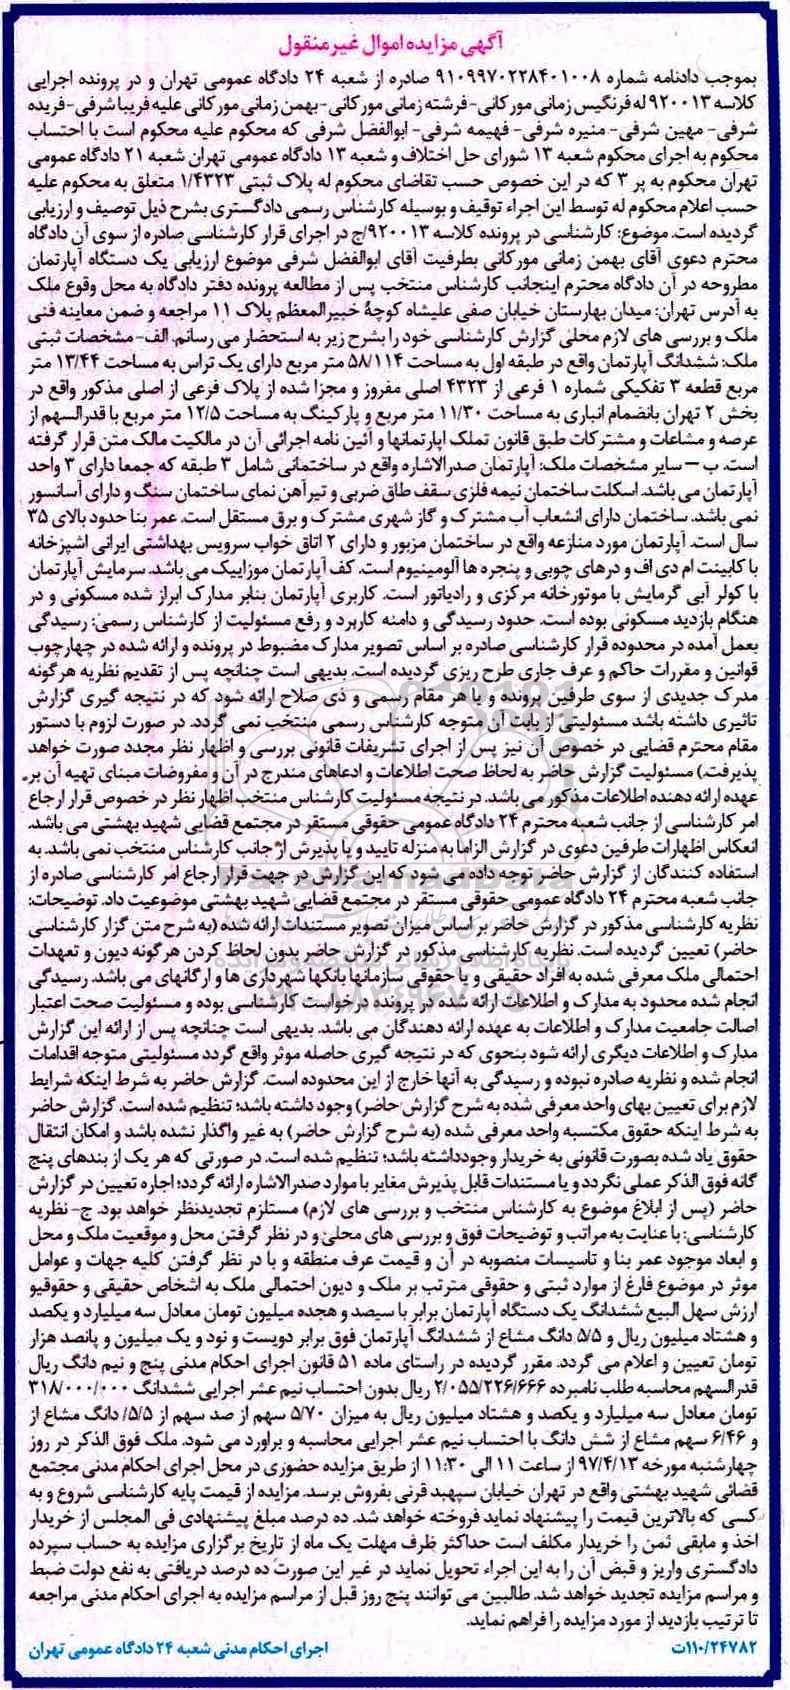 آگهی مزایده اموال غیرمنقول
بموجب دادنامه شماره ۹۱۰۹۹۷۰۲۲۸۴۰۱۰۰۸ صادره از شعبه ۲۴ دادگاه عمومی تهران و در پرونده اجرایی
کلاسه ۹۲۰۰۱۳ له فرنگیس زمانی مورکانی- فرشته زمانی مورکانی- بهمن زمانی مورکانی علیه فریبا شرفی- فریده
شرفی- مهین شرفی- منیره شرفی- فهیمه شرفی- ابوالفضل شرفی که محکوم علیه محکوم است با احتساب
محکوم به اجرای محکوم شعبه ۱۳ شورای حل اختلاف و شعبه ۱۳ دادگاه عمومی تهران شعبه ۲۱ دادگاه عمومی
تهران محکوم به پر ۳ که در این خصوص حسب تقاضای محکوم له پلاک ثبتی ۱/۴۳۲۳ متعلق به محکوم علیه
حسب اعلام محکوم له توسط این اجراء توقیف و بوسیله کارشناس رسمی دادگستری بشرح ذیل توصیف و ارزیابی
گردیده است. موضوع: کارشناسی در پرونده کلاسه ۹۲۰۰۱۳/ج در اجرای قرار کارشناسی صادره از سوی آن دادگاه
محترم دعوی آقای بهمن زمانی مورکانی بطرفیت آقای ابوالفضل شرفی موضوع ارزیابی یک دستگاه آپارتمان
مطروحه در آن دادگاه محترم اینجانب کارشناس منتخب پس از مطالعه پرونده دفتر دادگاه به محل وقوع ملک
به آدرس تهران: میدان بهارستان خیابان صفی علیشاه کوچهٔ خبیرالمعظم پلاک ۱۱ مراجعه و ضمن معاینه فنی
ملک و بررسی های لازم محلی گزارش کارشناسی خود را بشرح زیر به استحضار می رسانم. الف- مشخصات ثبتی
ملک: ششدانگ آپارتمان واقع در طبقه اول به مساحت ۵۸/۱۱۴ متر مربع دارای یک تراس به مساحت ۱۳/۴۴ متر
مربع قطعه ۳ تفکیکی شماره ۱ فرعی از ۴۳۲۳ اصلی مفروز و مجزا شده از پلاک فرعی از اصلی مذکور واقع در
بخش ۲ تهران بانضمام انباری به مساحت ۱۱/۳۰ متر مربع و پارکینگ به مساحت ۱۲/۵ متر مربع با قدرالسهم از
عرصه و مشاعات و مشترکات طبق قانون تملک اپارتمانها و آئین نامه اجرائی آن در مالکیت مالک متن قرار گرفته
است. ب – سایر مشخصات ملک: آپارتمان صدرالاشاره واقع در ساختمانی شامل ۳ طبقه که جمعا دارای ۳ واحد
آپارتمان می باشد. اسکلت ساختمان نیمه فلزی سقف طاق ضربی و تیرآهن نمای ساختمان سنگ و دارای آسانسور
نمی باشد. ساختمان دارای انشعاب آب مشترک و گاز شهری مشترک و برق مستقل است. عمر بنا حدود بالای ۳۵
سال است. آپارتمان مورد منازعه واقع در ساختمان مزبور و دارای ۲ اتاق خواب سرویس بهداشتی ایرانی اشپزخانه
با کابینت ام دی اف و درهای چوبی و پنجره ها آلومینیوم است. کف آپارتمان موزاییک می باشد. سرمایش آپارتمان
با کولر آبی گرمایش با موتورخانه مرکزی و رادیاتور است. کاربری آپارتمان بنابر مدارک ابراز شده مسکونی و در
هنگام بازدید مسکونی بوده است. حدود رسیدگی و دامنه کاربرد و رفع مسئولیت از کارشناس رسمی: رسیدگی
بعمل آمده در محدوده قرار کارشناسی صادره بر اساس تصویر مدارک مضبوط در پرونده و ارائه شده در چهارچوب
قوانین و مقررات حاکم و عرف جاری طرح ریزی گردیده است. بدیهی است چنانچه پس از تقدیم نظریه هرگونه
مدرک جدیدی از سوی طرفین پرونده و یا هر مقام رسمی و ذی صلاح ارائه شود که در نتیجه گیری گزارش
تاثیری داشته باشد مسئولیتی از بابت آن متوجه کارشناس رسمی منتخب نمی گردد. در صورت لزوم با دستور
مقام محترم قضایی در خصوص آن نیز پس از اجرای تشریفات قانونی بررسی و اظهار نظر مجدد صورت خواهد
پذیرفت.) مسئولیت گزارش حاضر به لحاظ صحت اطلاعات و ادعاهای مندرج در آن و مفروضات مبنای تهیه آن بر
عهده ارائه دهنده اطلاعات مذکور می باشد. در نتیجه مسئولیت کارشناس منتخب اظهار نظر در خصوص قرار ارجاع
امر کارشناسی از جانب شعبه محترم ۲۴ دادگاه عمومی حقوقی مستقر در مجتمع قضایی شهید بهشتی می باشد.
انعکاس اظهارات طرفین دعوی در گزارش الزاما به منزله تایید و یا پذیرش از جانب کارشناس منتخب نمی باشد. به
استفاده کنندگان از گزارش حاضر توجه داده می شود که این گزارش در جهت قرار ارجاع امر کارشناسی صادره از
جانب شعبه محترم ۲۴ دادگاه عمومی حقوقی مستقر در مجتمع قضایی شهید بهشتی موضوعیت داد. توضیحات:
نظریه کارشناسی مذکور در گزارش حاضر بر اساس میزان تصویر مستندات ارائه شده (به شرح متن گزار کارشناسی
حاضر) تعیین گردیده است. نظریه کارشناسی مذکور در گزارش حاضر بدون لحاظ کردن هرگونه دیون و تعهدات
احتمالی ملک معرفی شده به افراد حقیقی و یا حقوقی سازمانها بانکها شهرداری ها و ارگانهای می باشد. رسیدگی
انجام شده محدود به مدارک و اطلاعات ارائه شده در پرونده درخواست کارشناسی بوده و مسئولیت صحت اعتبار
اصالت جامعیت مدارک و اطلاعات به عهده ارائه دهندگان می باشد. بدیهی است چنانچه پس از ارائه این گزارش
مدارک و اطلاعات دیگری ارائه شود بنحوی که در نتیجه گیری حاصله موثر واقع گردد مسئولیتی متوجه اقدامات
انجام شده و نظریه صادره نبوده و رسیدگی به آنها خارج از این محدوده است. گزارش حاضر به شرط اینکه شرایط
لازم برای تعیین بهای واحد معرفی شده به شرح گزارش حاضر) وجود داشته باشد؛ تنظیم شده است. گزارش حاضر
به شرط اینکه حقوق مکتسبه واحد معرفی شده (به شرح گزارش حاضر) به غیر واگذار نشده باشد و امکان انتقال
حقوق یاد شده بصورت قانونی به خریدار وجودداشته باشد؛ تنظیم شده است. در صورتی که هر یک از بندهای پنج
گانه فوق الذکر عملی نگردد و یا مستندات قابل پذیرش مغایر با موارد صدرالاشاره ارائه گردد؛ اجاره تعیین در گزارش
حاضر (پس از ابلاغ موضوع به کارشناس منتخب و بررسی های لازم) مستلزم تجدیدنظر خواهد بود. ج- نظریه
کارشناسی: با عنایت به مراتب و توضیحات فوق و بررسی های محلی و در نظر گرفتن محل و موقعیت ملک و محل
و ابعاد موجود عمر بنا و تاسیسات منصوبه در آن و قیمت عرف منطقه و با در نظر گرفتن کلیه جهات و عوامل
موثر در موضوع فارغ از موارد ثبتی و حقوقی مترتب بر ملک و دیون احتمالی ملک به اشخاص حقیقی و حقوقیو
ارزش سهل البیع ششدانگ یک دستگاه آپارتمان برابر با سیصد و هجده میلیون تومان معادل سه میلیارد و یکصد
و هشتاد میلیون ریال و ۵/۵ دانگ مشاع از ششدانگ آپارتمان فوق برابر دویست و نود و یک میلیون و پانصد هزار
تومان تعیین و اعلام می گردد. مقرر گردیده در راستای ماده ۵۱ قانون اجرای احکام مدنی پنج و نیم دانگ ریال
قدرالسهم محاسبه طلب نامبرده ۲/۰۵۵/۲۲۶/۶۶۶ ریال بدون احتساب نیم عشر اجرایی ششدانگ ۳۱۸/۰۰۰/۰۰۰
تومان معادل سه میلیارد و یکصد و هشتاد میلیون ریال به میزان ۵/۷۰ سهم از صد سهم از ۵/۵/ دانگ مشاع از
و ۶/۴۶ سهم مشاع از شش دانگ با احتساب نیم عشر اجرایی محاسبه و براورد می شود. ملک فوق الذکر در روز
چهارشنبه مورخه ۹۷/۴/۱۳ از ساعت ۱۱ الی ۱۱:۳۰ از طریق مزایده حضوری در محل اجرای احکام مدنی مجتمع
قضائی شهید بهشتی واقع در تهران خیابان سپهبد قرنی بفروش برسد. مزایده از قیمت پایه کارشناسی شروع و به
کسی که بالاترین قیمت را پیشنهاد نماید فروخته خواهد شد. ده درصد مبلغ پیشنهادی فی المجلس از خریدار
اخذ و مابقی ثمن را خریدار مکلف است حداکثر ظرف مهلت یک ماه از تاریخ برگزاری مزایده به حساب سپرده
دادگستری واریز و قبض آن را به این اجراء تحویل نماید در غیر این صورت ده درصد دریافتی به نفع دولت ضبط
و مراسم مزایده تجدید خواهد شد. طالبین می توانند پنج روز قبل از مراسم مزایده به اجرای احکام مدنی مراجعه
تا ترتیب بازدید از مورد مزایده را فراهم نماید.
۱۱۰/۲۴۷۸۲ت اجرای احکام مدنی شعبه ۲۴ دادگاه عمومی تهران